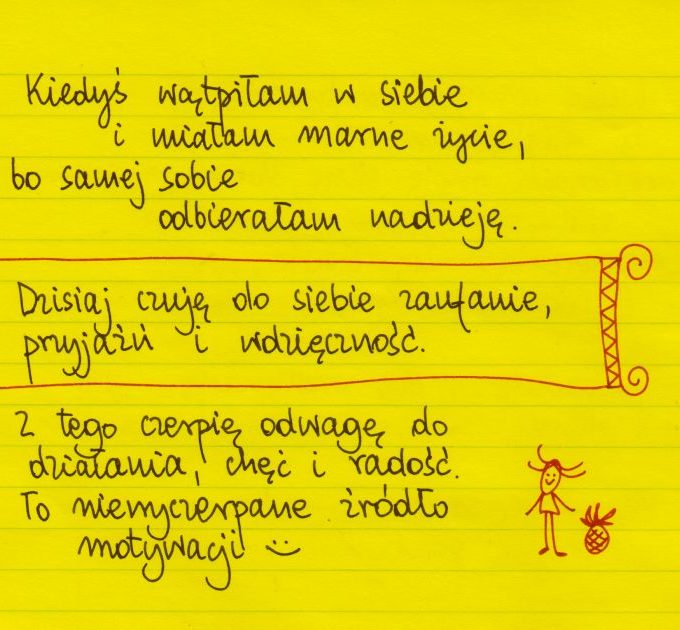 Kiedyś wątpiłam w siebie
i miałam marne życie,
bo samej sobie
odbierałam nadzieję.
Dzisiaj czuję do siebie zaufanie,
przyjaźń i wdzięczność.
Z tego czerpię odwagę do
działania, chęć i radość.
To niewyczerpane źródło
motywacji :)